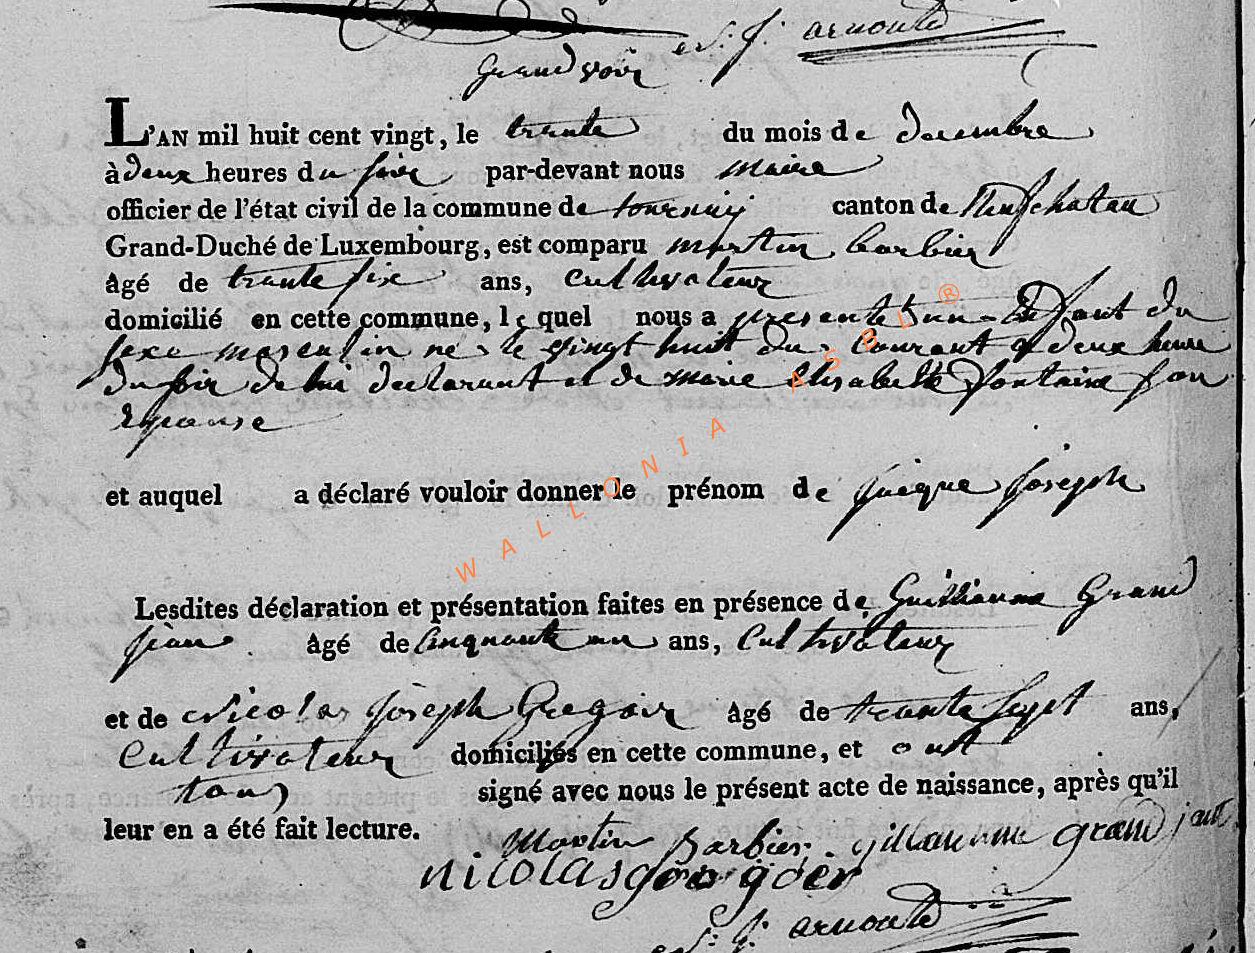 N. J. arnould
Grandvoir
L'AN mil huit cent vingt, le trante du mois de decembre
à deux heures du soir par-devant nous maire
officier de l'état civil de la commune de tournay canton de Neufchatau
Grand-Duché de Luxembourg, est comparu martin barbier
âgé de trante six ans, cultivateur
domicilié en cette commune, le quel nous a presenté un Enfant du
sexe masculin né le vingt huit du courant a deux heure
du soir de lui declarant et de marie elisabette fontaine son
Epouse
et auquel a déclaré vouloir donner le prénom de jacque joseph
Lesdites déclaration et présentation faites en présence de Guilliaume Grand
jean âgé de cinquante un ans, Cultivateur
et de Nicolas joseph Gregoir âgé de trante sept ans,
Cultivateur domiciliés en cette commune, et ont
tous signé avec nous le présent acte de naissance, après qu'il
leur en a été fait lecture.
Martin Barbier gillaumme grand jant
nicolas
N. J. arnould
WALLONIA ASBL ®